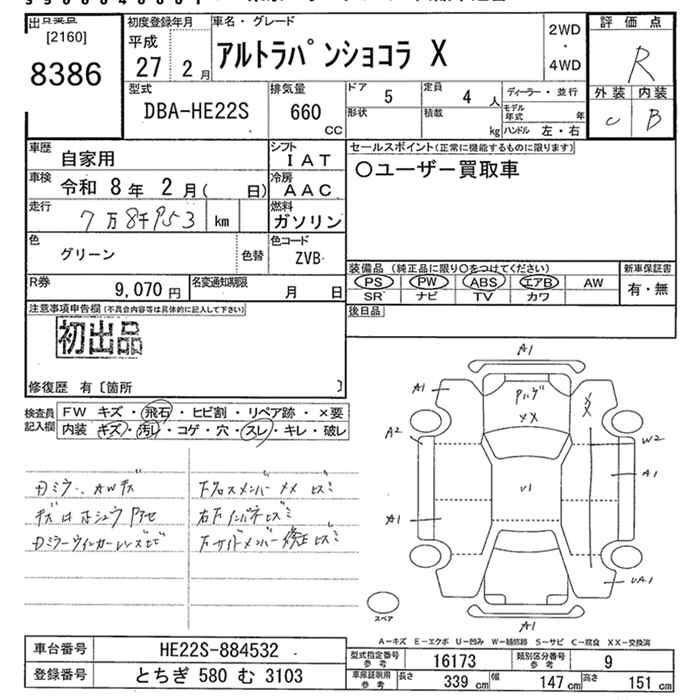 [2160]
8386
初度登録年月
平成
27 2月
車名・グレード
アルトラパンショコラ X
2WD
・
4WD
評価点
R
外装 内装
C B
型式
DBA-HE22S
排気量
660
CC
ドア
5
定員
4 人
形状
積載
kg
ディーラー・並行
モデル年式 年
ハンドル 左・右
車歴
自家用
シフト
IAT
車検
令和 8年 2月( 日)
冷房
AAC
走行
7万8千953 km
燃料
ガソリン
色
グリーン
色替
色コード
ZVB
R券
9,070円
名変通知期限
月 日
セールスポイント(正常に機能するものに限ります)
○ユーザー買取車
装備品 (純正品に限り○をつけてください)
PS PW ABS エアB AW
SR ナビ TV カワ
新車保証書
有・無
後日品
注意事項申告欄(不具合内容等は具体的に記入して下さい)
初出品
修復歴 有〔箇所 〕
検査員
記入欄
FW キズ・飛石・ヒビ割・リペア跡・×要
内装 キズ・汚れ・コゲ・穴・スレ・キレ・破レ
下クロスメンバー
A1
A1
××
A2
W2
A1
A1
U1
UA1
A1
スペア
A-キズ E-エクボ U-凹み W-補修跡 S-サビ C-腐食 XX-交換済
車台番号
HE22S-884532
登録番号
とちぎ 580 む 3103
型式指定番号
参考
16173
類別区分番号
参考
9
車庫証明用
参考
長さ
339 cm
幅
147 cm
高さ
151 cm